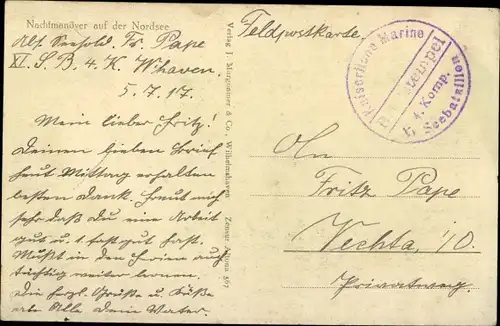 Nachtmanöver auf der Nordsee
Abs. Seesold. Fr. Pape
XI. S. B. 4. K. W'haven.
5.7.17.
Mein lieber Fritz!
Deinen lieben Brief
heut Mittag erhalten
besten Dank. Freut mich
sehr daß Du eine Arbeit
gut u. 1. fast gut hast.
Mußt in den Ferien auch
tüchtig weiter lernen.
Die herzl. Grüße u. Küße
Alle Dein Vater.
Verlag J. Morgenbner & Co., Wilhelmshaven
Zensur Altona 367
Feldpostkarte
Kaiserliche Marine
Briefstempel
4. Komp.
Seebataillon
An
Fritz Pape
Vechta i/O.
Privatweg.